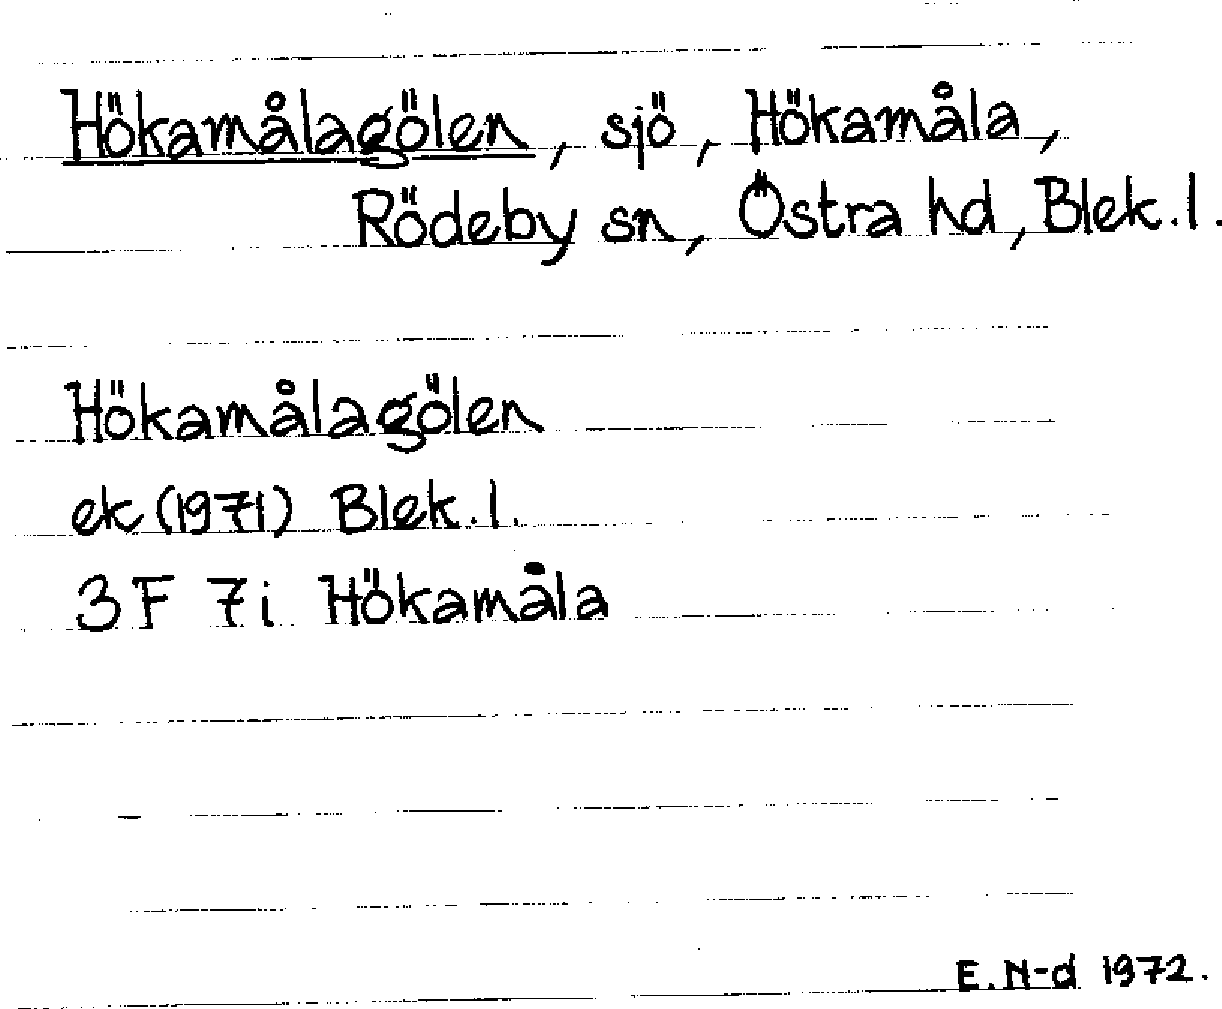 Hökamålagölen, sjö, Hökamåla,
Rödeby sn, Östra hd, Blek.l.
Hökamålagölen
ek (1971) Blek.l.
3F 7i Hökamåla
E.N-d 1972.